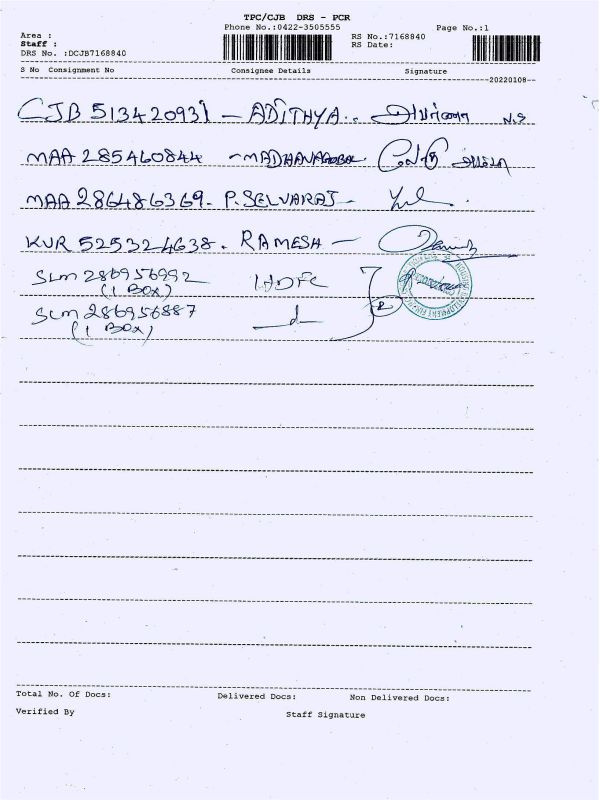 TPC/CJB DRS - PCR
Phone No.:0422-3505555
Page No.:1
Area :
Staff :
DRS No. :DCJB7168840
RS No.:7168840
RS Date:
S No Consignment No Consignee Details Signature
20220108
CJB 513420931 - ADITHYA.
MAA 285460844 - MADHANAGOPAL
MAA 286486369. P. SELVARAJ -
KUR 525324638. RAMESH -
SLM 286956992 HDFC
(1 Box)
SLM 286956887
(1 Box)
2
Total No. Of Docs: Delivered Docs: Non Delivered Docs:
Verified By Staff Signature